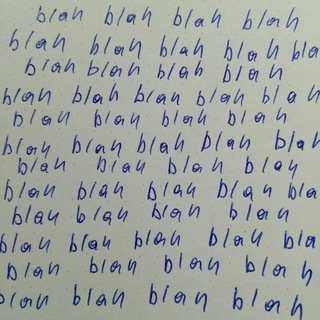 blah blah blah blah
blah blah blah blah bla
blah blah blah blah
blah blah blah blah blah
blah blah blah blah
blah blah blah blah blah
blah blah blah blah
blah blah blah blah bla
blah blah blah blah
blah blah blah blah bla
blah blah blah blah
blah blah blah blah